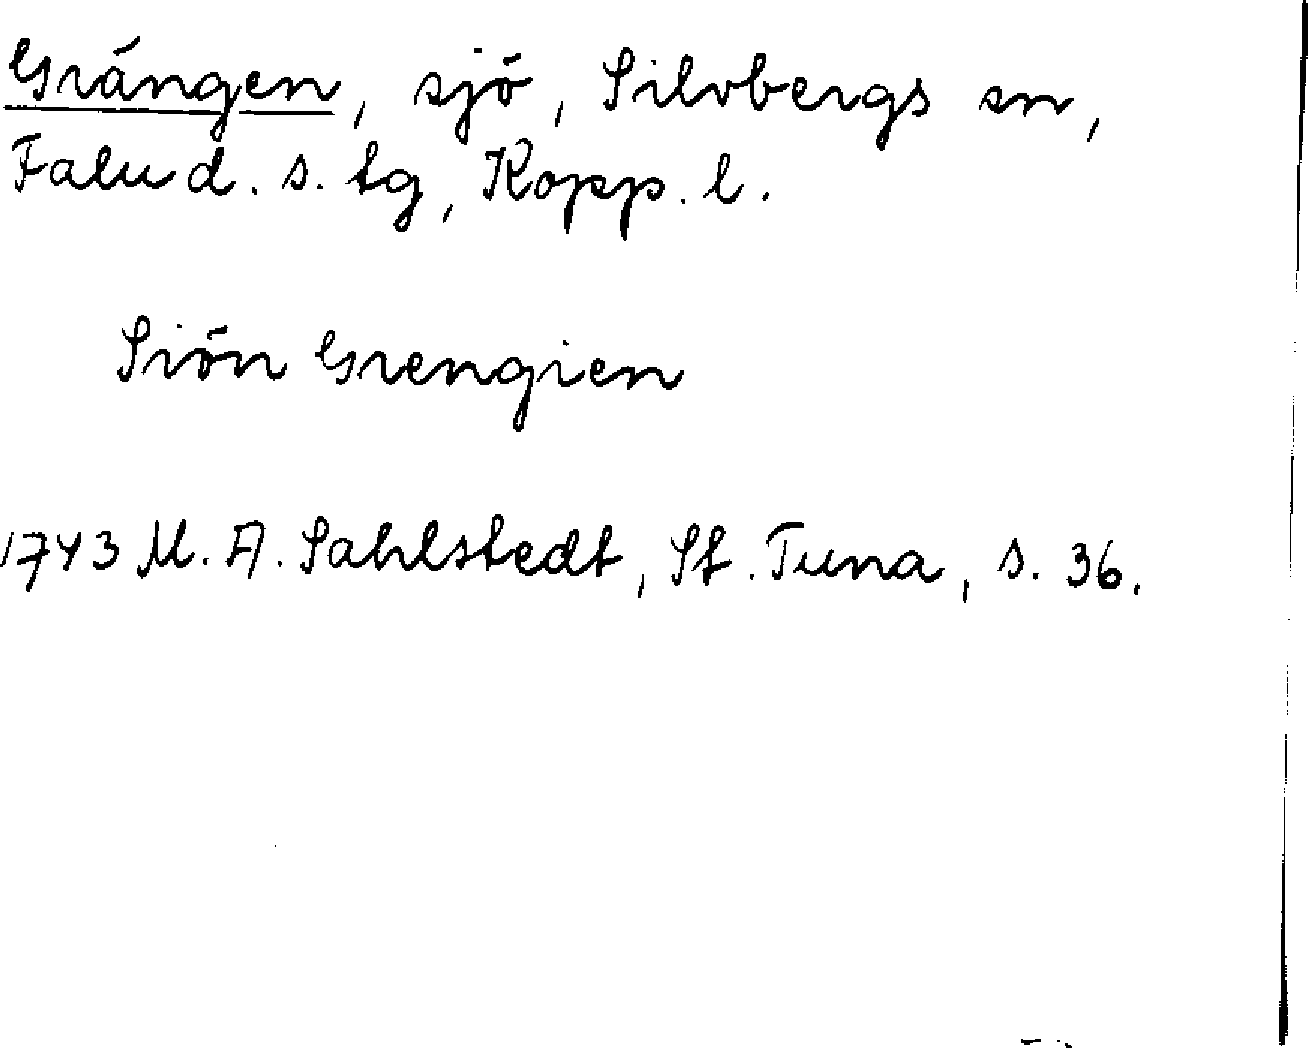 Grängen, sjö, Silvbergs sn,
Falu d. s. tg, Kopp. l.
Siön Grengien
1743 M. A. Sahlstedt, St. Tuna, s. 36.